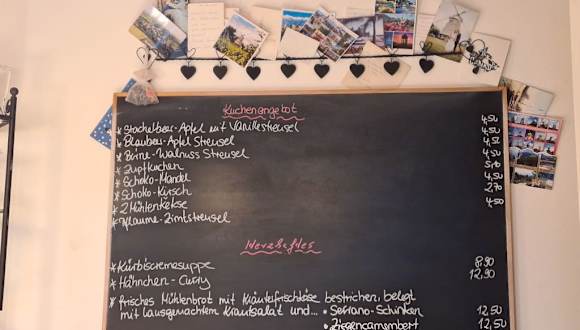 Kuchenangebot
* Stachelbeer-Apfel mit Vanillestreusel 4,50
* Blaubeer-Apfel Streusel 4,50
* Birne-Walnuss Streusel 4,50
* Zupfkuchen 4,50
* Schoko-Mandel 5,10
* Schoko-Kirsch 4,50
* 2 Mühlenkekse 2,70
* Pflaume-Zimtstreusel 4,50
Herzhaftes
* Kürbiscremesuppe 8,90
* Hähnchen-Curry 12,90
* frisches Mühlenbrot mit Kräuterfrischkäse bestrichen, belegt
mit hausgemachtem Krautsalat und... • Serrano-Schinken 12,50
• Ziegencamembert 12,50